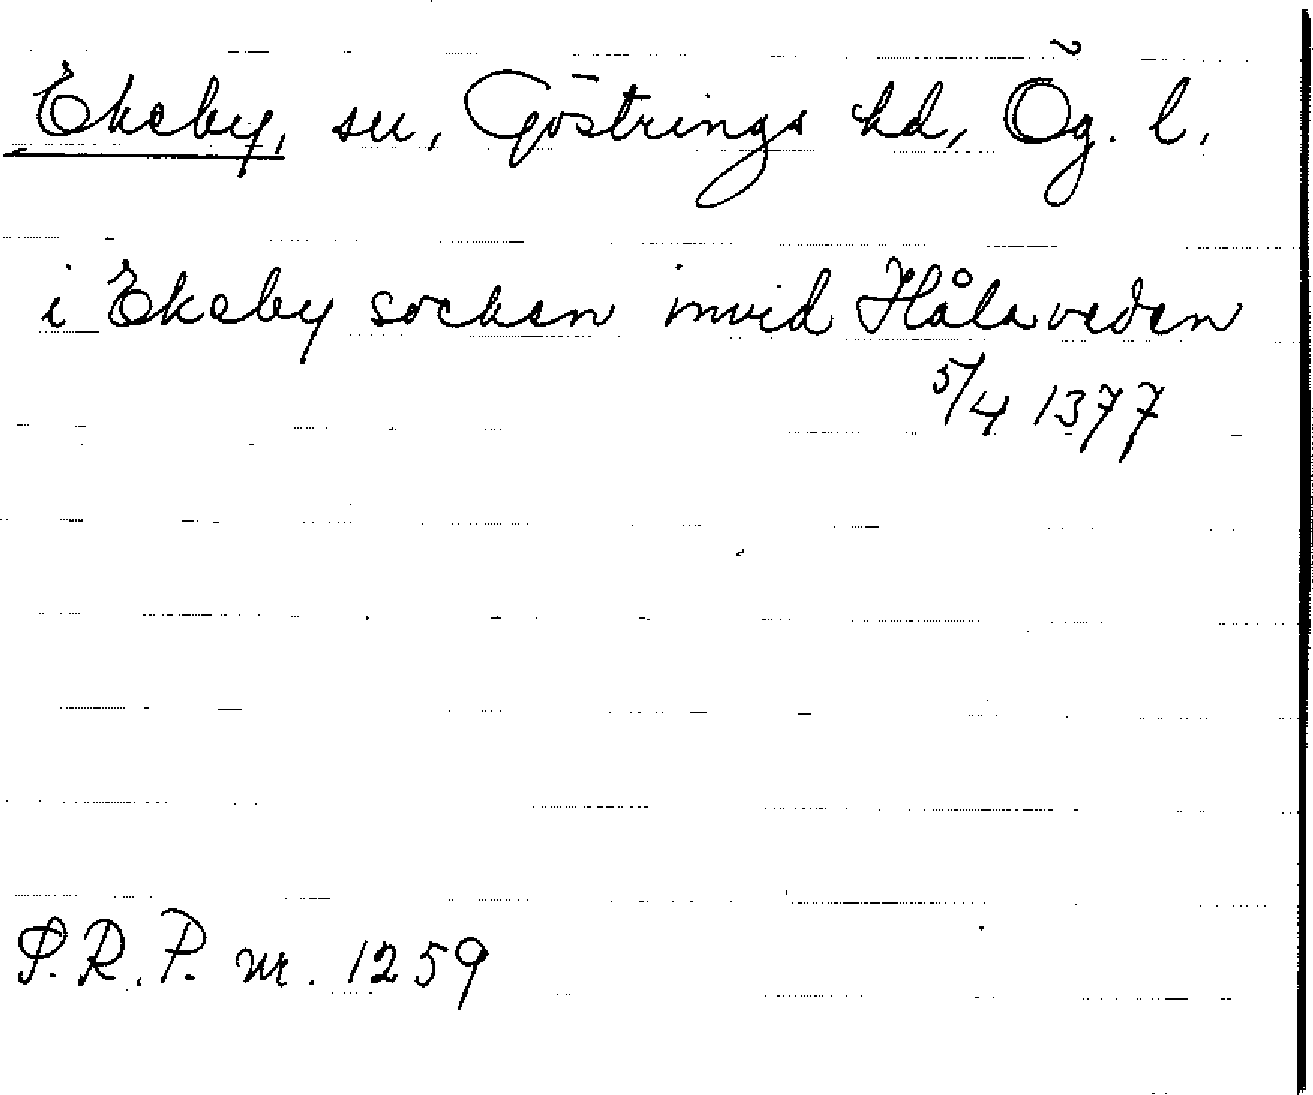 Ekeby, sn, Göstrings hd, Ög. l.
i Ekeby socken invid Hålaveden
5/4 1377
S.R.P. nr. 1259